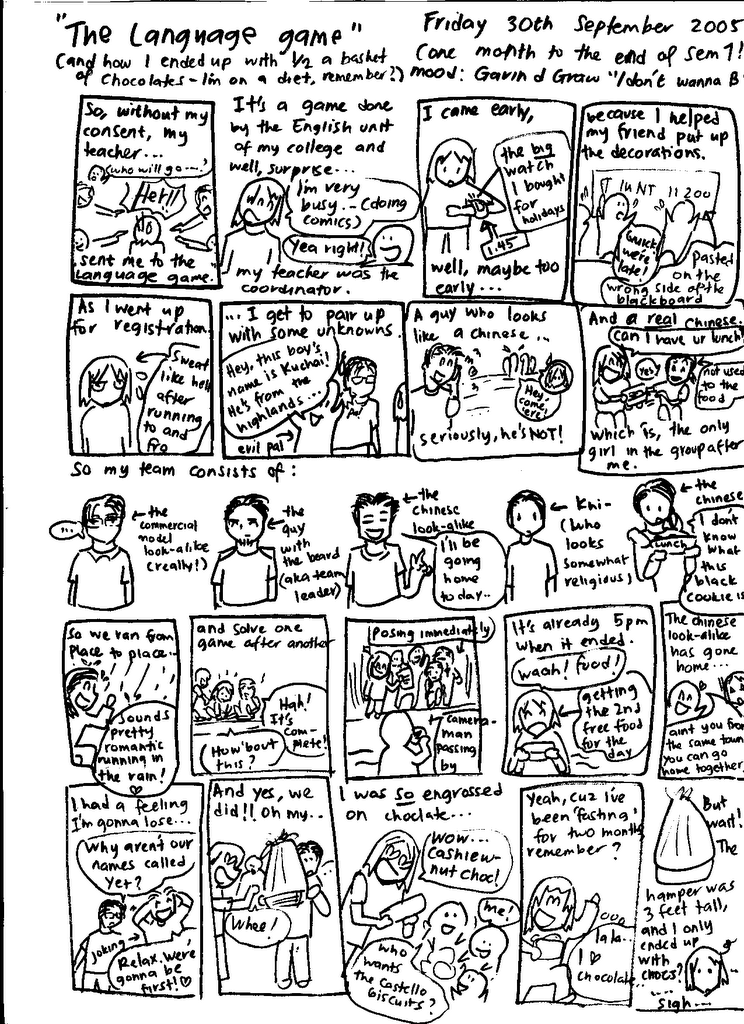 "The Language game"
(and how I ended up with 1/2 a basket
of chocolates - I'm on a diet, remember?)
Friday 30th September 2005
(one month to the end of sem 1!
mood: Gavin d Graw "I don't wanna B
So, without my
consent, my
teacher...
who will go...
Hey!!
sent me to the
language game.
It's a game done
by the English unit
of my college and
well, surprise...
I'm very
busy.. - (doing
comics)
Yea right!
my teacher was the
coordinator.
I came early,
the big
watch
I bought
for
holidays
1.45
well, maybe too
early...
because I helped
my friend put up
the decorations.
Quick
were
late!
Pasted
on the
wrong side of the
blackboard
As I went up
for registration
Sweat
like hell
after
running
to and
fro
... I get to pair up
with some unknowns.
Hey, this boy's
name is Kuchai!
He's from the
highlands...
evil pal
A guy who looks
like a chinese...
Hey,
come,
'ere!
seriously, he's NOT!
And a real Chinese.
Can I have ur lunch?
Yes!
not used
to the
food
which is, the only
girl in the group after
me.
So my team consists of:
...
the
commercial
model
look-alike
(really!)
the
guy
with
the beard
(aka team
leader)
the
chinese
look-alike
I'll be
going
home
today..
Khi-
(who
looks
somewhat
religious)
the
chinese
lunch
I don't
know
what
this
black
cookie is
So we ran from
place to place..
Sounds
pretty
romantic
running in
the rain!
and solve one
game after another
Hah!
It's
com-
plete!
How 'bout
this?
Posing immediately
camera-
man
passing
by
It's already 5pm
when it ended.
waah! food!
getting
the 2nd
free food
for the
day
The chinese
look-alike
has gone
home...
aint you from
the same town
you can go
home together
I had a feeling
I'm gonna lose...
Why aren't our
names called
yet?
joking
Relax. We're
gonna be
first!
And yes, we
did!! Oh my..
Whee!
I was so engrossed
on choclate...
Wow...
Cashew-
nut choc!
me!
who
wants
the Castello
biscuits?
Yeah, cuz I've
been 'fasting'
for two months
remember?
lala..
I ♡
chocolate
But
wait!
The
hamper was
3 feet tall,
and I only
ended up
with
chocs?
....
sigh...